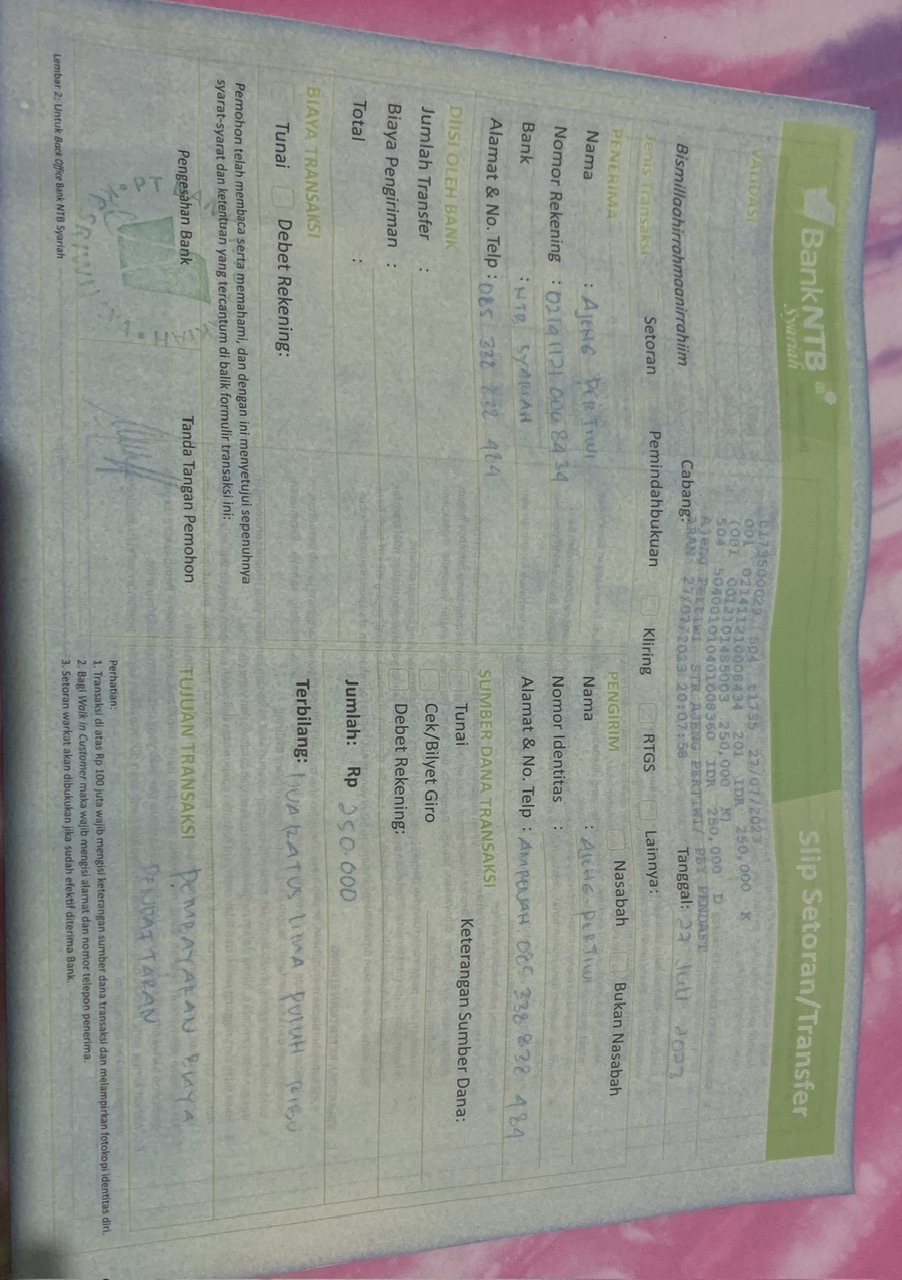 Bank NTB
Syariah
Slip Setoran/Transfer
VALIDASI
27/07/2023
001 0214112100068434 201 IDR 250,000 K
504 5040010104001008360 IDR 250,000 D
Ajeng Pertiwi STR AJENG PERTIWI/ PBY PENDAFT
27/07/2023
Bismillaahirrahmaanirrahiim
Cabang:
Tanggal: 27 Juli 2023
Jenis Transaksi
Setoran
Pemindahbukuan
Kliring
RTGS
Lainnya:
PENERIMA
Nama : AJENG PERTIWI
Nomor Rekening :
Bank : NTB SYARIAH
Alamat & No. Telp :
PENGIRIM
Nasabah
Bukan Nasabah
Nama : AJENG PERTIWI
Nomor Identitas :
Alamat & No. Telp : AMPENAN 085 338 832 484
DIISI OLEH BANK
Jumlah Transfer :
Biaya Pengiriman :
Total :
SUMBER DANA TRANSAKSI
Tunai
Keterangan Sumber Dana:
Cek/Bilyet Giro
Debet Rekening:
BIAYA TRANSAKSI
Tunai
Debet Rekening:
Jumlah: Rp 250.000
Terbilang: DUA RATUS LIMA PULUH RIBU
Pemohon telah membaca serta memahami, dan dengan ini menyetujui sepenuhnya
syarat-syarat dan ketentuan yang tercantum di balik formulir transaksi ini:
Pengesahan Bank
Tanda Tangan Pemohon
TUJUAN TRANSAKSI
PEMBAYARAN BIAYA
PENDAFTARAN
Perhatian:
1. Transaksi di atas Rp 100 juta wajib mengisi keterangan sumber dana transaksi dan melampirkan fotokopi identitas diri.
2. Bagi Walk in Customer maka wajib mengisi alamat dan nomor telepon penerima.
3. Setoran warkat akan dibukukan jika sudah efektif diterima Bank.
Lembar 2: Untuk Back Office Bank NTB Syariah